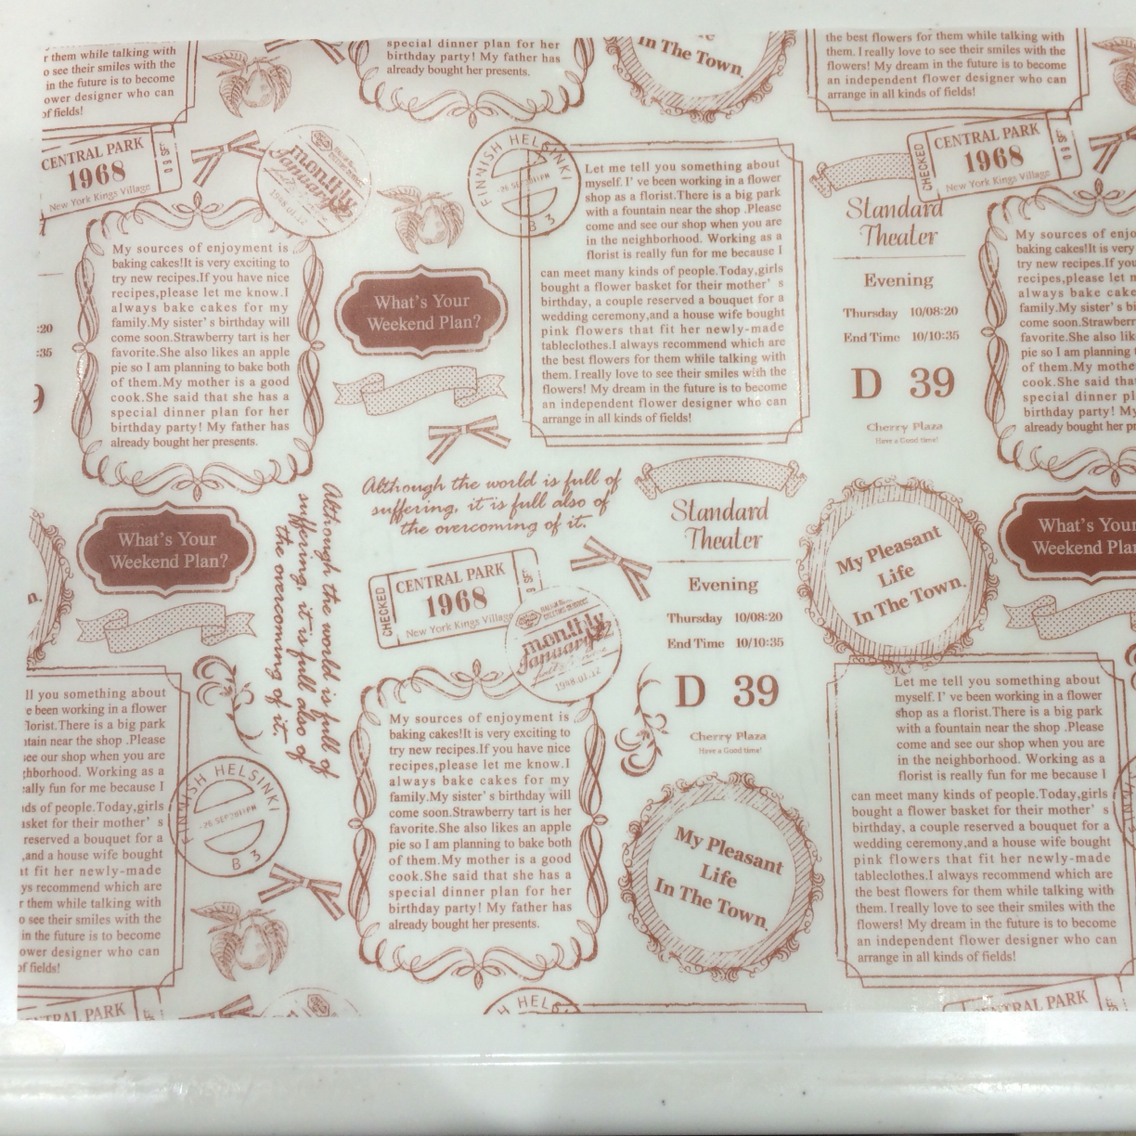 r them while talking with
o see their smiles with the
in the future is to become
ower designer who can
of fields!
special dinner plan for her
birthday party! My father has
already bought her presents.
In The Town.
the best flowers for them while talking with
them. I really love to see their smiles with the
flowers! My dream in the future is to become
an independent flower designer who can
arrange in all kinds of fields!
CENTRAL PARK
1968
New York Kings Village
monthly
January
1968.01.12
FINNISH HELSINKI
26 SEP 2011PM
B 3
CHECKED
CENTRAL PARK
1968
New York Kings Village
My sources of enjoyment is
baking cakes!It is very exciting to
try new recipes.If you have nice
recipes,please let me know.I
always bake cakes for my
family.My sister' s birthday will
come soon.Strawberry tart is her
favorite.She also likes an apple
pie so I am planning to bake both
of them.My mother is a good
cook.She said that she has a
special dinner plan for her
birthday party! My father has
already bought her presents.
What's Your
Weekend Plan?
Let me tell you something about
myself. I' ve been working in a flower
shop as a florist.There is a big park
with a fountain near the shop .Please
come and see our shop when you are
in the neighborhood. Working as a
florist is really fun for me because I
can meet many kinds of people.Today,girls
bought a flower basket for their mother' s
birthday, a couple reserved a bouquet for a
wedding ceremony,and a house wife bought
pink flowers that fit her newly-made
tableclothes.I always recommend which are
the best flowers for them while talking with
them. I really love to see their smiles with the
flowers! My dream in the future is to become
an independent flower designer who can
arrange in all kinds of fields!
Standard
Theater
Evening
Thursday 10/08:20
End Time 10/10:35
D 39
Cherry Plaza
Have a Good time!
My sources of enjo
baking cakes!It is very
try new recipes.If you
recipes,please let me
always bake cake
family.My sister' s bi
come soon.Strawberr
favorite.She also lik
pie so I am planning t
of them.My mothe
cook.She said tha
special dinner pl
birthday party! My
already bought her pr
:20
:35
9
What's Your
Weekend Plan?
Although the world is full of
suffering, it is full also of
the overcoming of it.
Although the world is full of
suffering, it is full also of
the overcoming of it.
CHECKED
CENTRAL PARK
1968
New York Kings Village
monthly
January
1968.01.12
Standard
Theater
Evening
Thursday 10/08:20
End Time 10/10:35
D 39
Cherry Plaza
Have a Good time!
My Pleasant
Life
In The Town.
What's Your
Weekend Plan
n.
ll you something about
e been working in a flower
lorist.There is a big park
tain near the shop .Please
ee our shop when you are
ghborhood. Working as a
ally fun for me because I
ds of people.Today,girls
asket for their mother' s
reserved a bouquet for a
,and a house wife bought
at fit her newly-made
ys recommend which are
r them while talking with
o see their smiles with the
in the future is to become
ower designer who can
of fields!
FINNISH HELSINKI
26 SEP 2011PM
B 3
My sources of enjoyment is
baking cakes!It is very exciting to
try new recipes.If you have nice
recipes,please let me know.I
always bake cakes for my
family.My sister' s birthday will
come soon.Strawberry tart is her
favorite.She also likes an apple
pie so I am planning to bake both
of them.My mother is a good
cook.She said that she has a
special dinner plan for her
birthday party! My father has
already bought her presents.
My Pleasant
Life
In The Town.
Let me tell you something about
myself. I' ve been working in a flower
shop as a florist.There is a big park
with a fountain near the shop .Please
come and see our shop when you are
in the neighborhood. Working as a
florist is really fun for me because I
can meet many kinds of people.Today,girls
bought a flower basket for their mother' s
birthday, a couple reserved a bouquet for a
wedding ceremony,and a house wife bought
pink flowers that fit her newly-made
tableclothes.I always recommend which are
the best flowers for them while talking with
them. I really love to see their smiles with the
flowers! My dream in the future is to become
an independent flower designer who can
arrange in all kinds of fields!
TRAL PARK
HELS
CENTRAL PARK